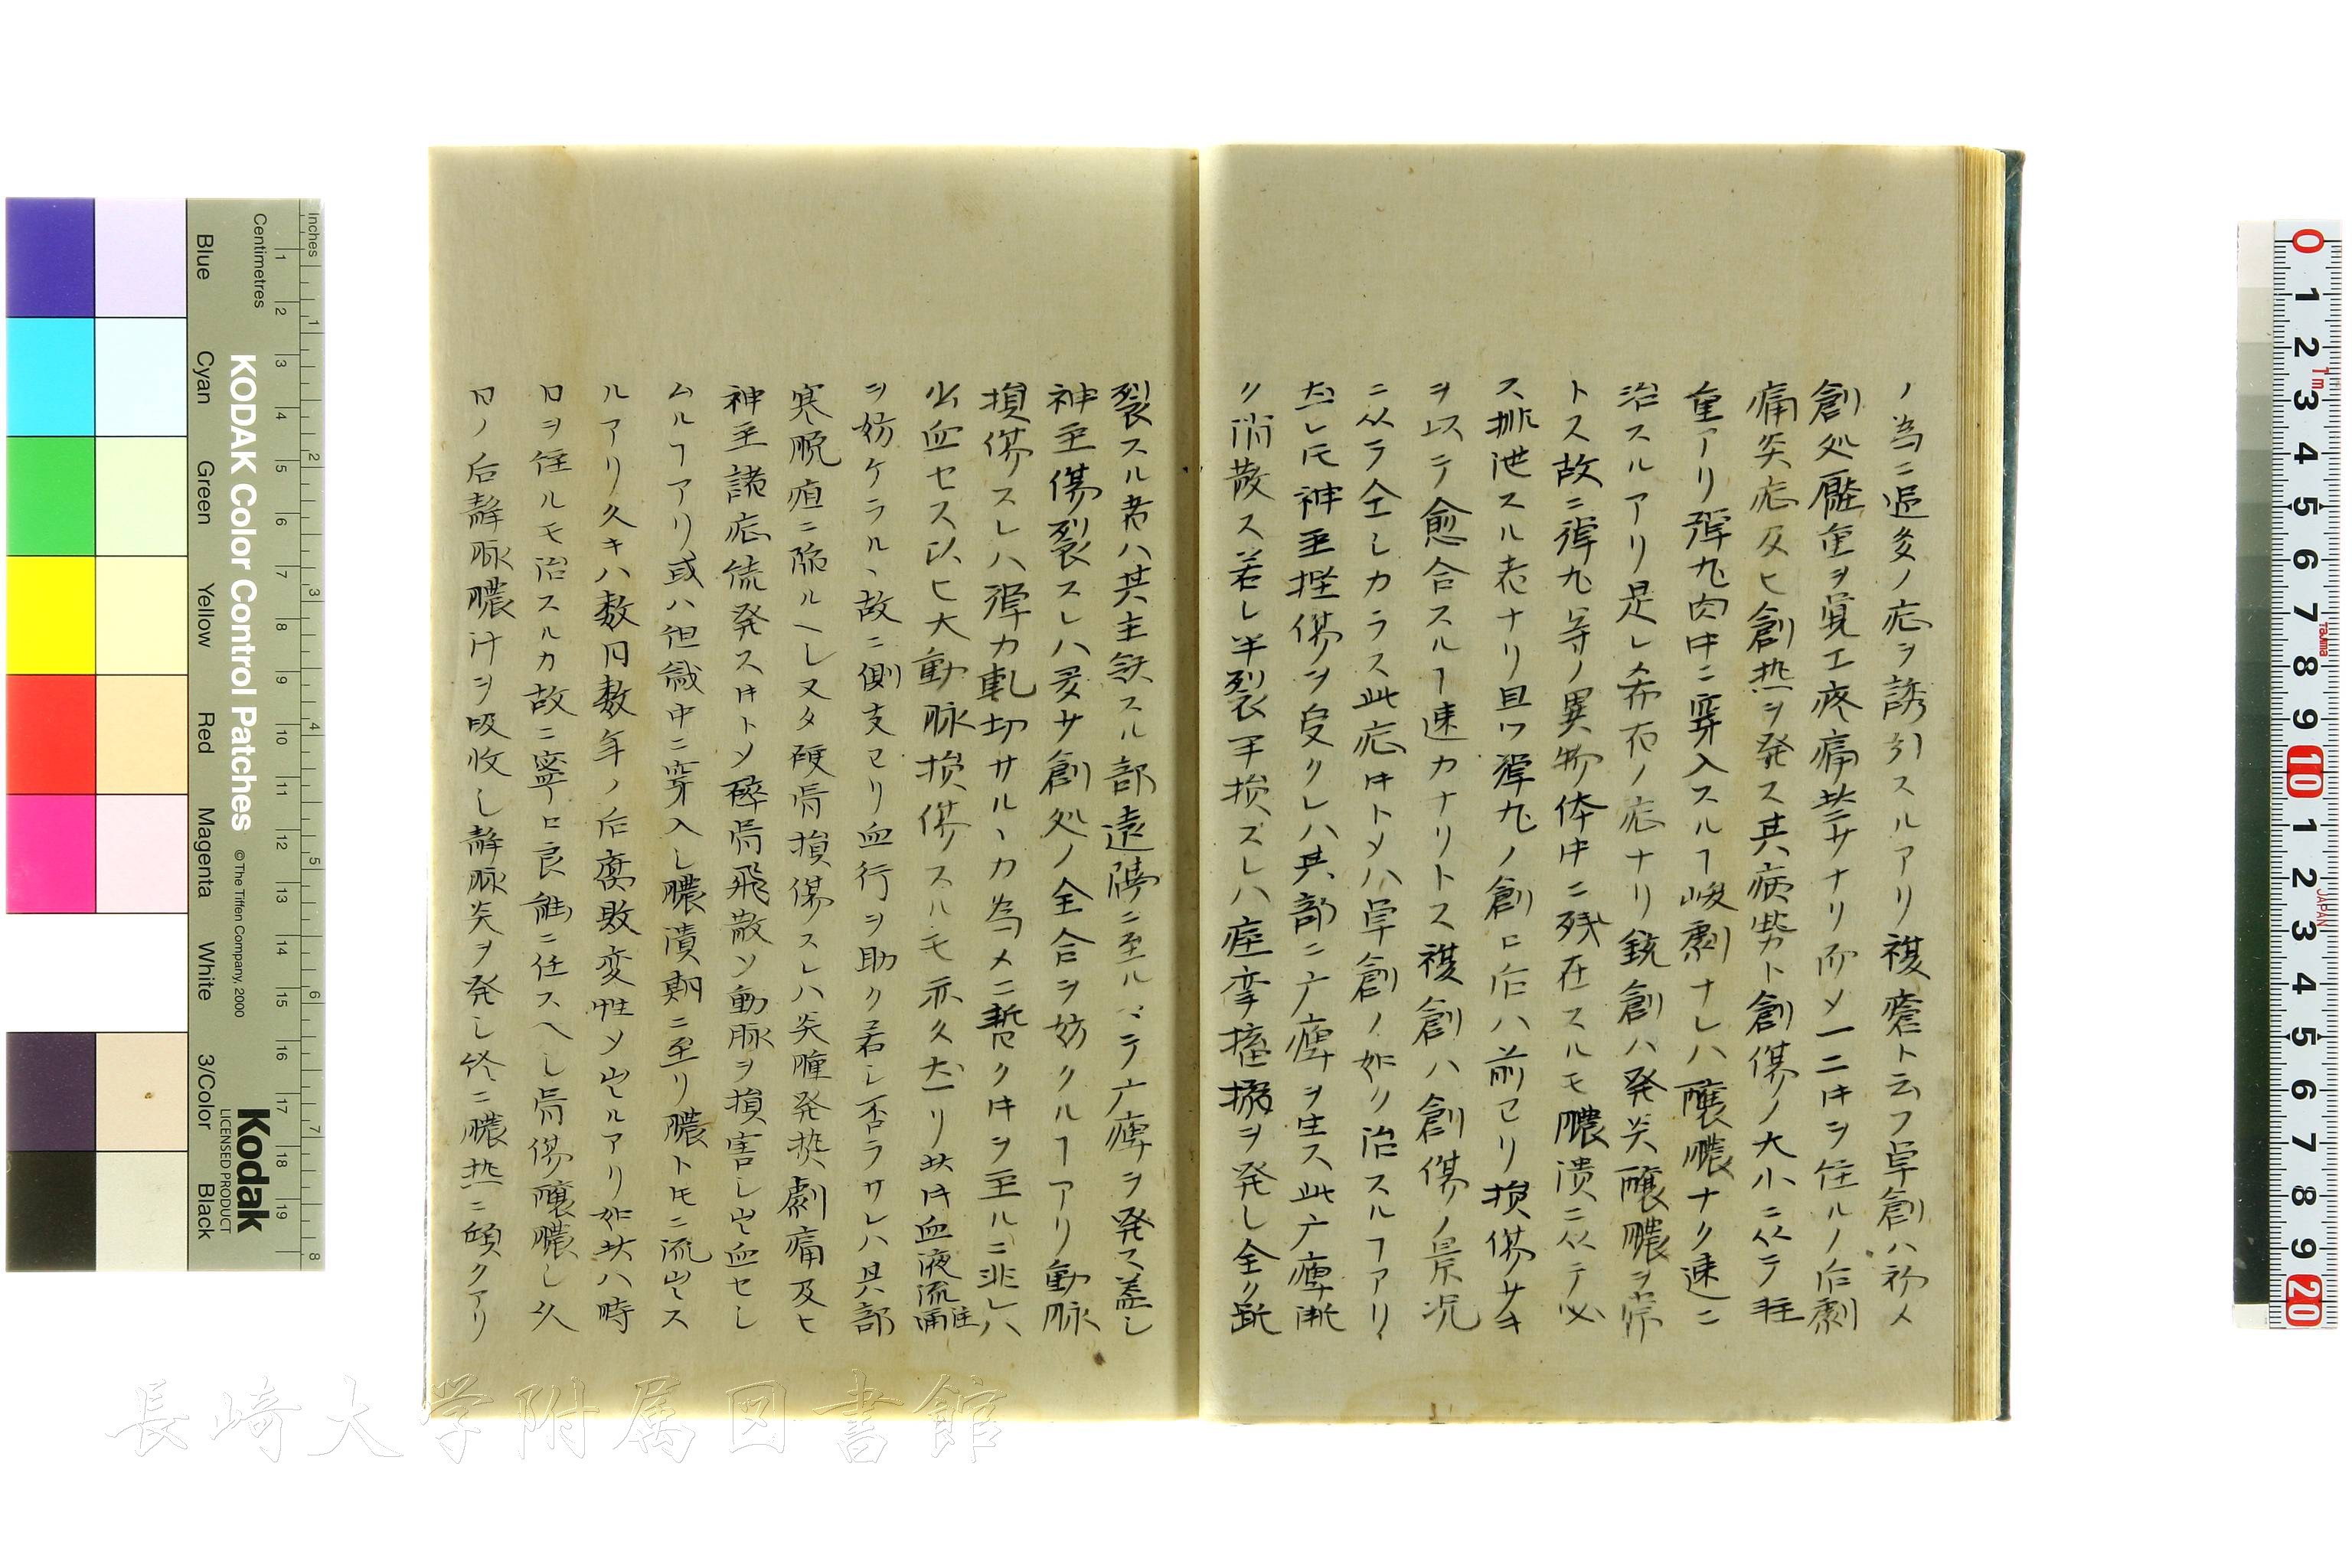 ノ為ニ逗多ノ症ヲ誘引スルアリ複瘡ト云フ単創ハ初メ
創処壓重ヲ覚エ疼痛甚サナリ而メ一二日ヲ住ルノ后劇
痛炎症及ヒ創熱ヲ発ス其病勢ト創傷ノ大小ニ从テ軽
重アリ弾丸肉中ニ穿入スルヿ峻劇ナレハ醸膿ナク速ニ
治スルアリ是レ希有ノ症ナリ銃創ハ発炎醸膿ヲ常
トス故ニ弾丸等ノ異物体中ニ残在スルモ膿潰ニ从テ必
ス排泄スル者ナリ且ツ弾丸ノ創口后ハ前ヨリ損傷サキ
ヲ以テ愈合スルヿ速カナリトス複創ハ創傷ノ景况
ニ从テ全シカラス此症中トメハ単創ノ如ク治スルヿアリ
𪜈神至挫傷ヲ受クレハ其部ニ广痺ヲ生ス此广痺漸
ク消散ス若シ半裂半損スレハ痙挛搐搦ヲ発シ全ク断
裂スル者ハ其主スル部遠隔ニ至ルマテ广痺ヲ発ス蓋シ
神至傷裂スレハ多サ創処ノ全合ヲ妨クルヿアリ動脉
損傷スレハ弾力軋切サル丶カ為メニ暫ク中ヲ至ルニ非レハ
出血セス以ヒ大動脉損傷スルモ亦久リ此中血液流注
ヲ妨ケラル丶故ニ側支ヨリ血行ヲ助ク若シ否ラサレハ其部
寒脱疽ニ陥ルヘシ又タ硬骨損傷スレハ炎腫発熱劇痛及ヒ
神至諸症続発ス中トメ碎骨飛散ソ動脉ヲ損害シ出血セシ
ムルヿアリ或ハ組織中ニ穿入シ膿潰期ニ至リ膿ト𪜈ニ流出ス
ルアリ久キハ数月数年ノ后腐敗変性ソ出ルアリ如此ハ時
日ヲ住ルモ治スルカ故ニ寧ロ良能ニ任スヘシ骨傷醸膿シ久
日ノ后静脉膿汁ヲ吸收シ静脉炎ヲ発シ終ニ膿熱ニ傾クアリ
長崎大学附属図書館
KODAK Color Control Patches
© The Tiffen Company, 2000
Kodak
LICENSED PRODUCT
Inches
Centimetres
Blue
Cyan
Green
Yellow
Red
Magenta
White
3/Color
Black